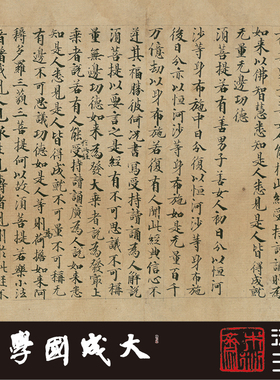 如來以佛智慧悉知是人悉見是人皆得成就
無量無邊功德
須菩提若有善男子善女人初日分以恒河
沙等身布施中日分復以恒河沙等身布施
後日分亦以恒河沙等身布施如是無量百千
万億劫以身布施若復有人聞此經典信心不
逆其福勝彼何況書寫受持讀誦為人解說
須菩提以要言之是經有不可思議不可稱量
無邊功德如來為發大乘者說為發最上
乘者說若有人能受持讀誦廣為人說如來悉
知是人悉見是人皆得成就不可量不可稱无
有邊不可思議功德如是人等則為荷擔如來阿
耨多羅三藐三菩提何以故須菩提若樂小法
大成國學